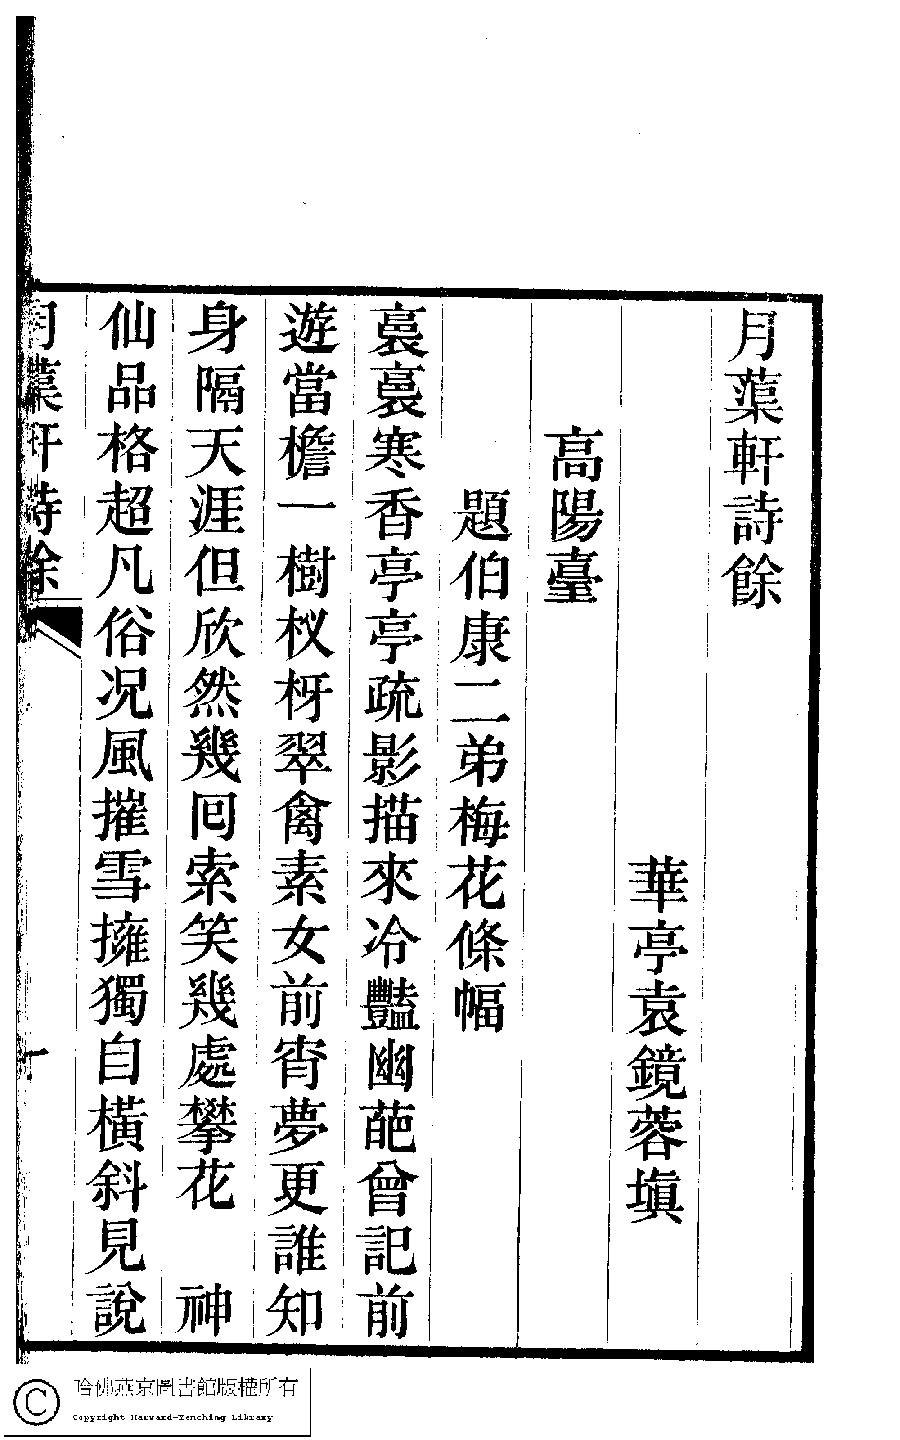 月蕖軒詩餘
華亭袁鏡蓉塡
高陽臺
題伯康二弟梅花條幅
裊裊寒香亭亭疏影描來冷豔幽葩曾記前
遊當檐一樹杈枒翠禽素女前宵夢更誰知
身隔天涯但欣然幾囘索笑幾處攀花　神
仙品格超凡俗况風摧雪擁獨自橫斜見說
月蕖軒詩餘
一
哈佛燕京圖書館版權所有
Copyright Harvard-Yenching Library